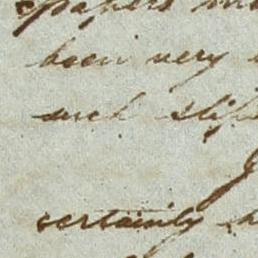 papers
been very
such slip
certainly